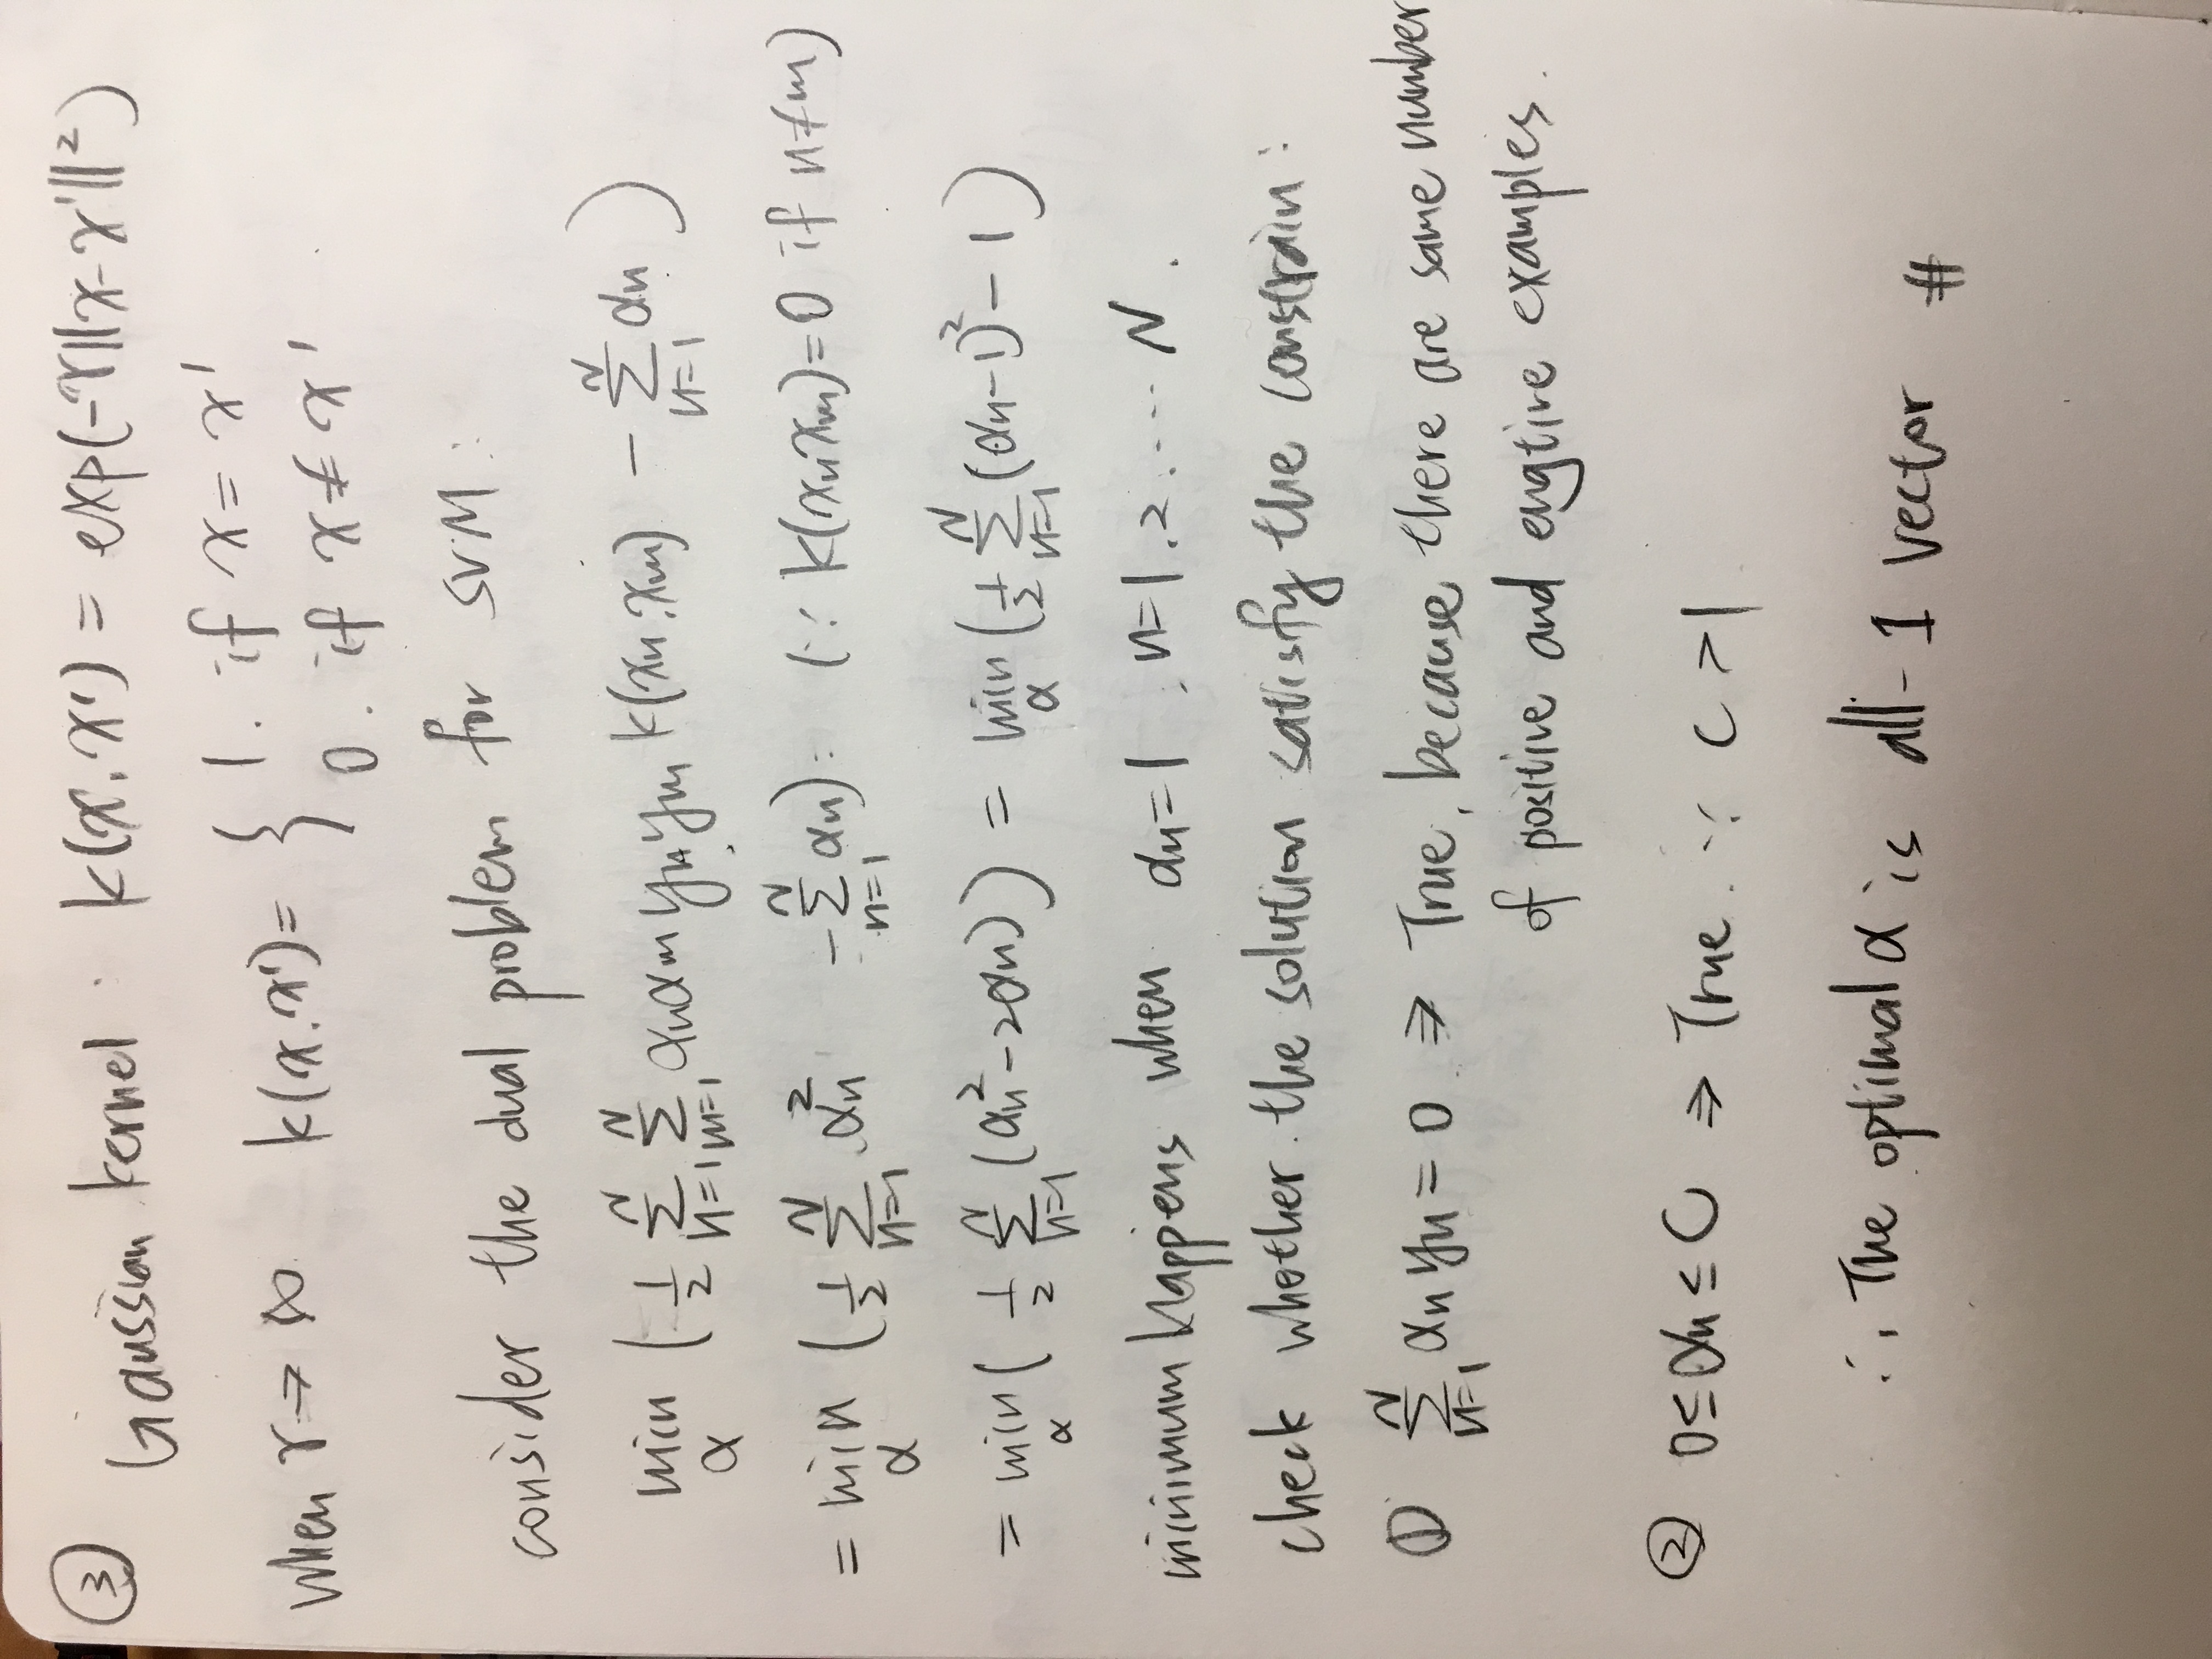 ③ Gaussian kernel : k(x, x') = exp(-γ||x-x'||²)
when γ → ∞ k(x, x') = { 1. if x = x'
0. if x ≠ x'
consider the dual problem for SVM :
min_α ( 1/2 Σ_{n=1}^{N} Σ_{m=1}^{N} αnαm yn ym k(xn, xm) - Σ_{n=1}^{N} αn )
= min_α ( 1/2 Σ_{n=1}^{N} αn² - Σ_{n=1}^{N} αn ) : (∵ k(xn, xm)=0 if n≠m)
= min_α ( 1/2 Σ_{n=1}^{N} (αn² - 2αn) ) = min_α ( 1/2 Σ_{n=1}^{N} (αn-1)² - 1 )
minimum happens when αn = 1 , n=1.2.···· N.
check whether the solution satisfy the constrain :
① Σ_{n=1}^{N} αn yn = 0 ⇒ True, because there are same number
of positive and engtive examples.
② 0 ≤ αn ≤ C ⇒ True. ∵ C > 1
∴ The optimal α is all-1 vector #